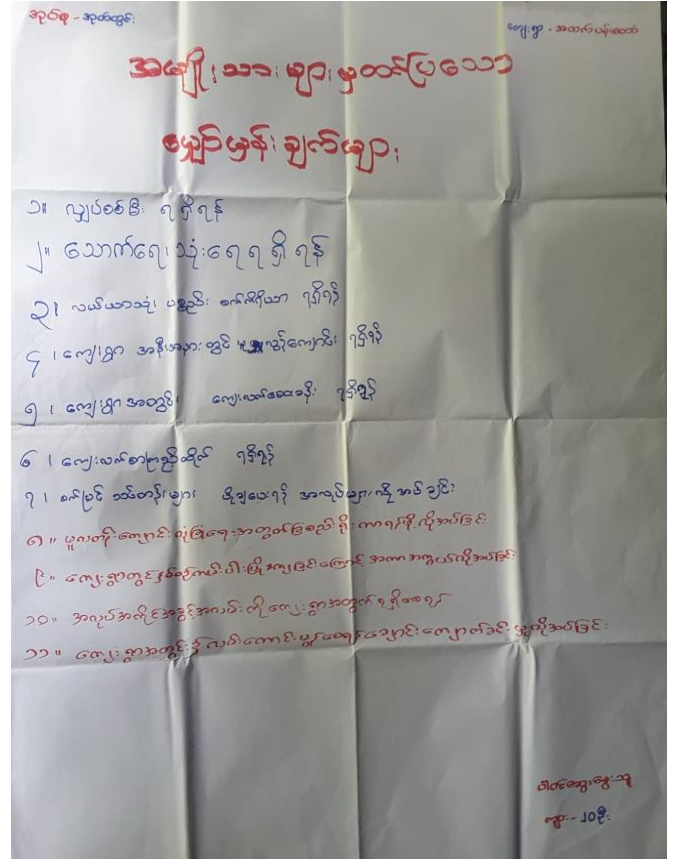 အုပ်စု - အုတ်တွင်း
ကျေးရွာ - အထက်ပန်းတော်
အမျိုးသားများမှတင်ပြသော
မျှော်မှန်းချက်များ
၁။ လျှပ်စစ်မီး ရရှိရန်
၂။ သောက်ရေ၊သုံးရေရရှိရန်
၃၊ လယ်ယာသုံး ပစ္စည်း စက်ကိရိယာ ရရှိရန်
၄ ၊ ကျေးရွာ အနီးအနားတွင် မူလွန်ကျောင်း ရရှိရန်
၅ ၊ ကျေးရွာအတွင်း ကျေးလက်ဆေးခန်း ရရှိရန်
၆ ၊ ကျေးလက်စာကြည့်တိုက် ရရှိရန်
၇ ၊ စက်ပြင် သင်တန်းများ ပို့ချပေးရန် အလုပ်များလိုအပ်ခြင်း
၈ ။ မူလတန်းကျောင်းလုံခြုံရေးအတွက်ခြံစည်းရိုးကာရန်ဖို့လိုအပ်ခြင်း
၉ ။ ကျေးရွာတွင်နှစ်စဉ်ကမ်းပါးပြိုကျခြင်းကြောင့် အကာအကွယ်လိုအပ်ခြင်း
၁၀ ။ အလုပ်အကိုင်အခွင့်အလမ်းကိုကျေးရွာအတွက်ရရှိစေရန်
၁၁ ။ ကျေးရွာအတွင်း၌လမ်းကောင်းမွန်စေရန်ချောင်းကျောက်ခင်းမှုလိုအပ်ခြင်း
ကျား - ၂၀ဦး